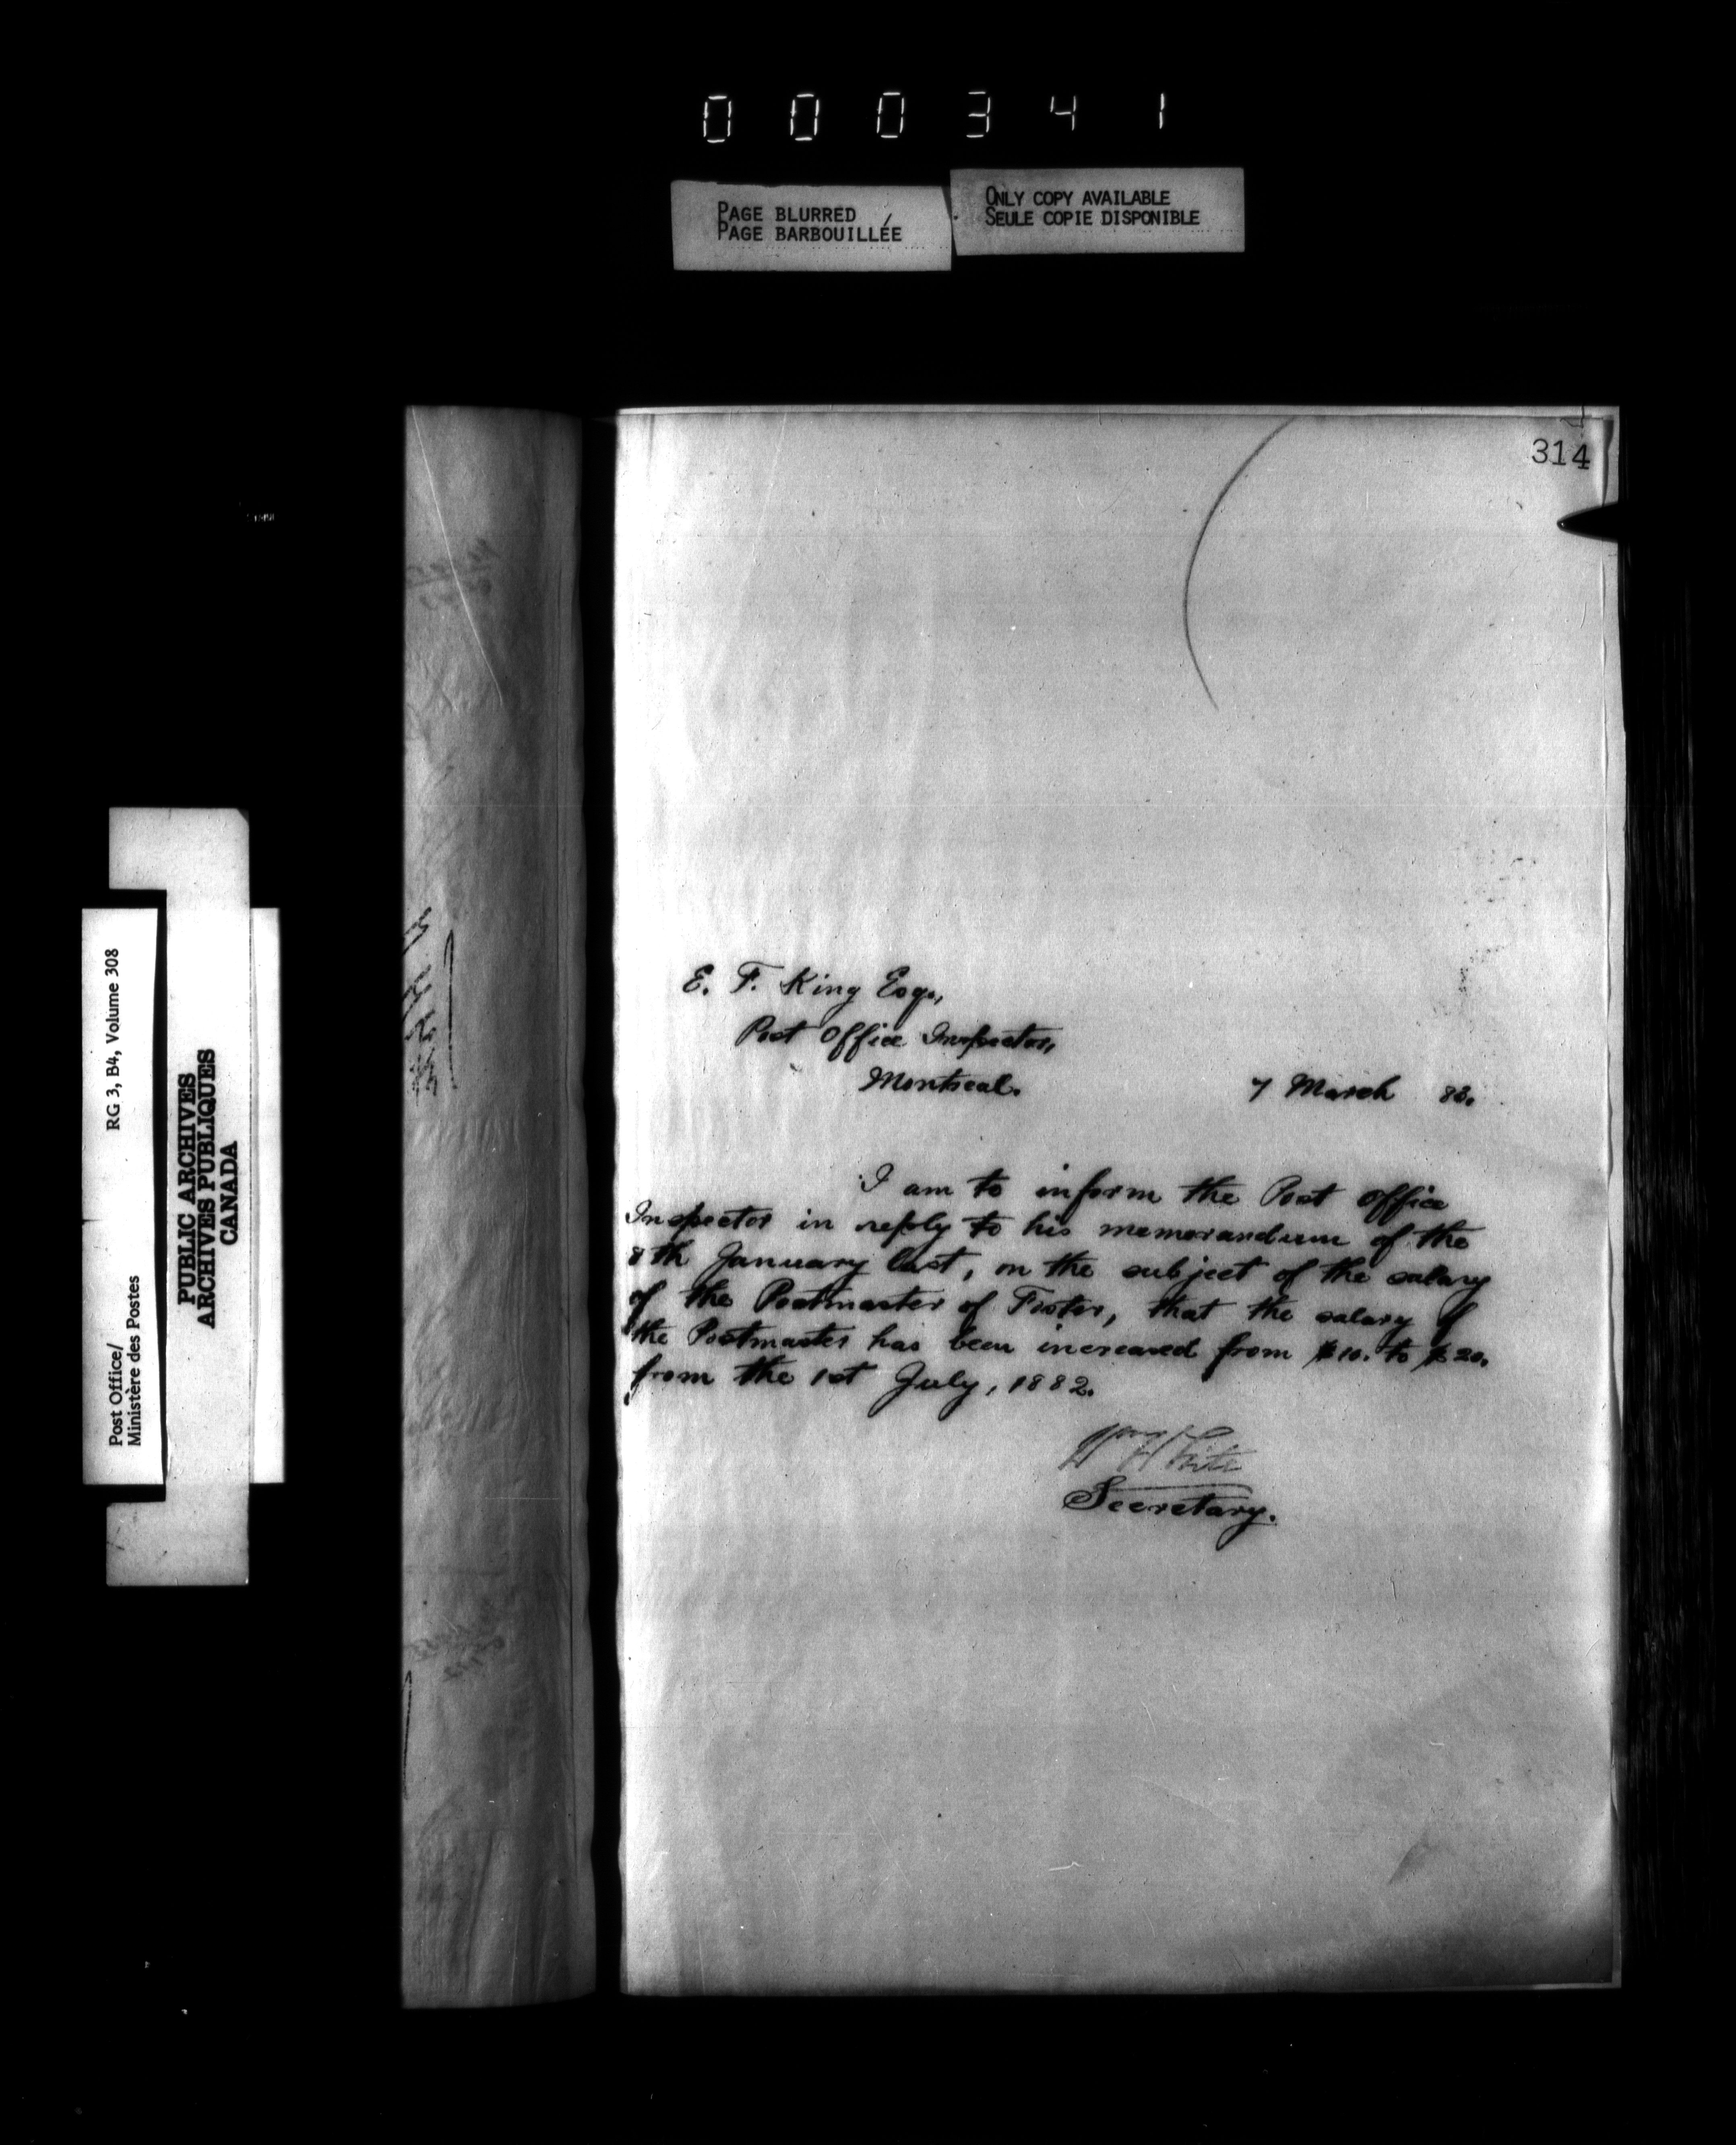 000341
PAGE BLURRED
PAGE BARBOUILLÉE
ONLY COPY AVAILABLE
SEULE COPIE DISPONIBLE
314
E. F. King Esq.,
Post Office Inspector,
Montreal.
7 March 83.
I am to inform the Post Office
Inspector in reply to his memorandum of the
8th January last, on the subject of the salary
of the Postmaster of Foster, that the salary of
the Postmaster has been increased from $10. to $20.
from the 1st July, 1882.
Wm White
Secretary.
Post Office/
Ministère des Postes
RG 3, B4, Volume 308
PUBLIC ARCHIVES
ARCHIVES PUBLIQUES
CANADA